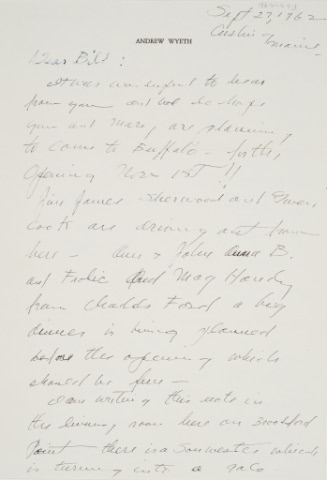 Sept 27, 1962
Cushing, Maine
ANDREW WYETH
Dear Bill:
It was wonderful to hear
from you and we do hope
you and Mary are planning
to come to Buffalo - for the
opening Nov 1st!!
James Sherwood and Gwen
Cook are driving out from
here - Ann & John Anna B.
and Frolic and Mag Handy
from Chadds Ford a big
dinner is being planned
before the opening which
should be fun -
I am writing this note in
the living room here on Broad
Point there is a Souwester which
is turning into a gale -